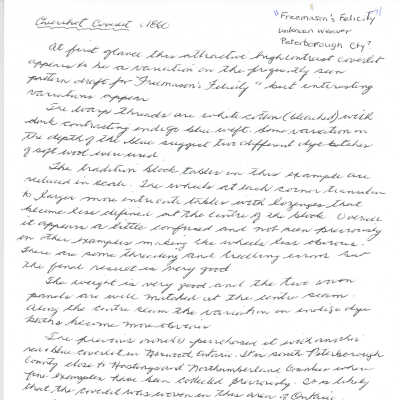 Overshot Coverlet c1860
"Freemason's Felicity"
Unknown weaver
Peterborough Cty?
At first glance this attractive high contrast coverlet
appears to be a variation on the frequently seen
pattern draft for Freemason's Felicity" but interesting
variations appear
The warp threads are white cotton (bleached) with
dark contrasting indigo blue weft. Some variation in
the depth of the blue suggest two different dye batches
of soft wool were used.
The tradition block tables in this example are
reduced in scale. The wheels at each corner transition
to larger more intricate tables with lozenges that
become less defined at the centre of the block Overall
it appears a little confused and not seen previously
in other examples making the wheels less obvious.
There are some threading and treadling errors but
the final result is very good
The weight is very good and the two sewn
panels are well matched at the centre seam
Along the centre seam the variation in indigo dye
baths become more obvious
The previous owner purchased it with another
red & blue coverlet in Norwood Ontario. It's in south Peterborough
County close to Hastings and Northumberland Counties where
fine examples have been collected previously. So is likely
that the coverlet was woven in this area of Ontario.